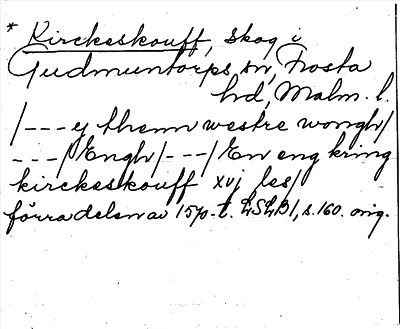 * Kirckeskouff, skog i
Gudmuntorps sn, Frosta
hd, Malm. l.
/---y thenn westre wongh/
---/Engh/---/En eng kring
kirckeskouff xvj les/
förra delen av 1570-t. LSLB1, s. 160. orig.